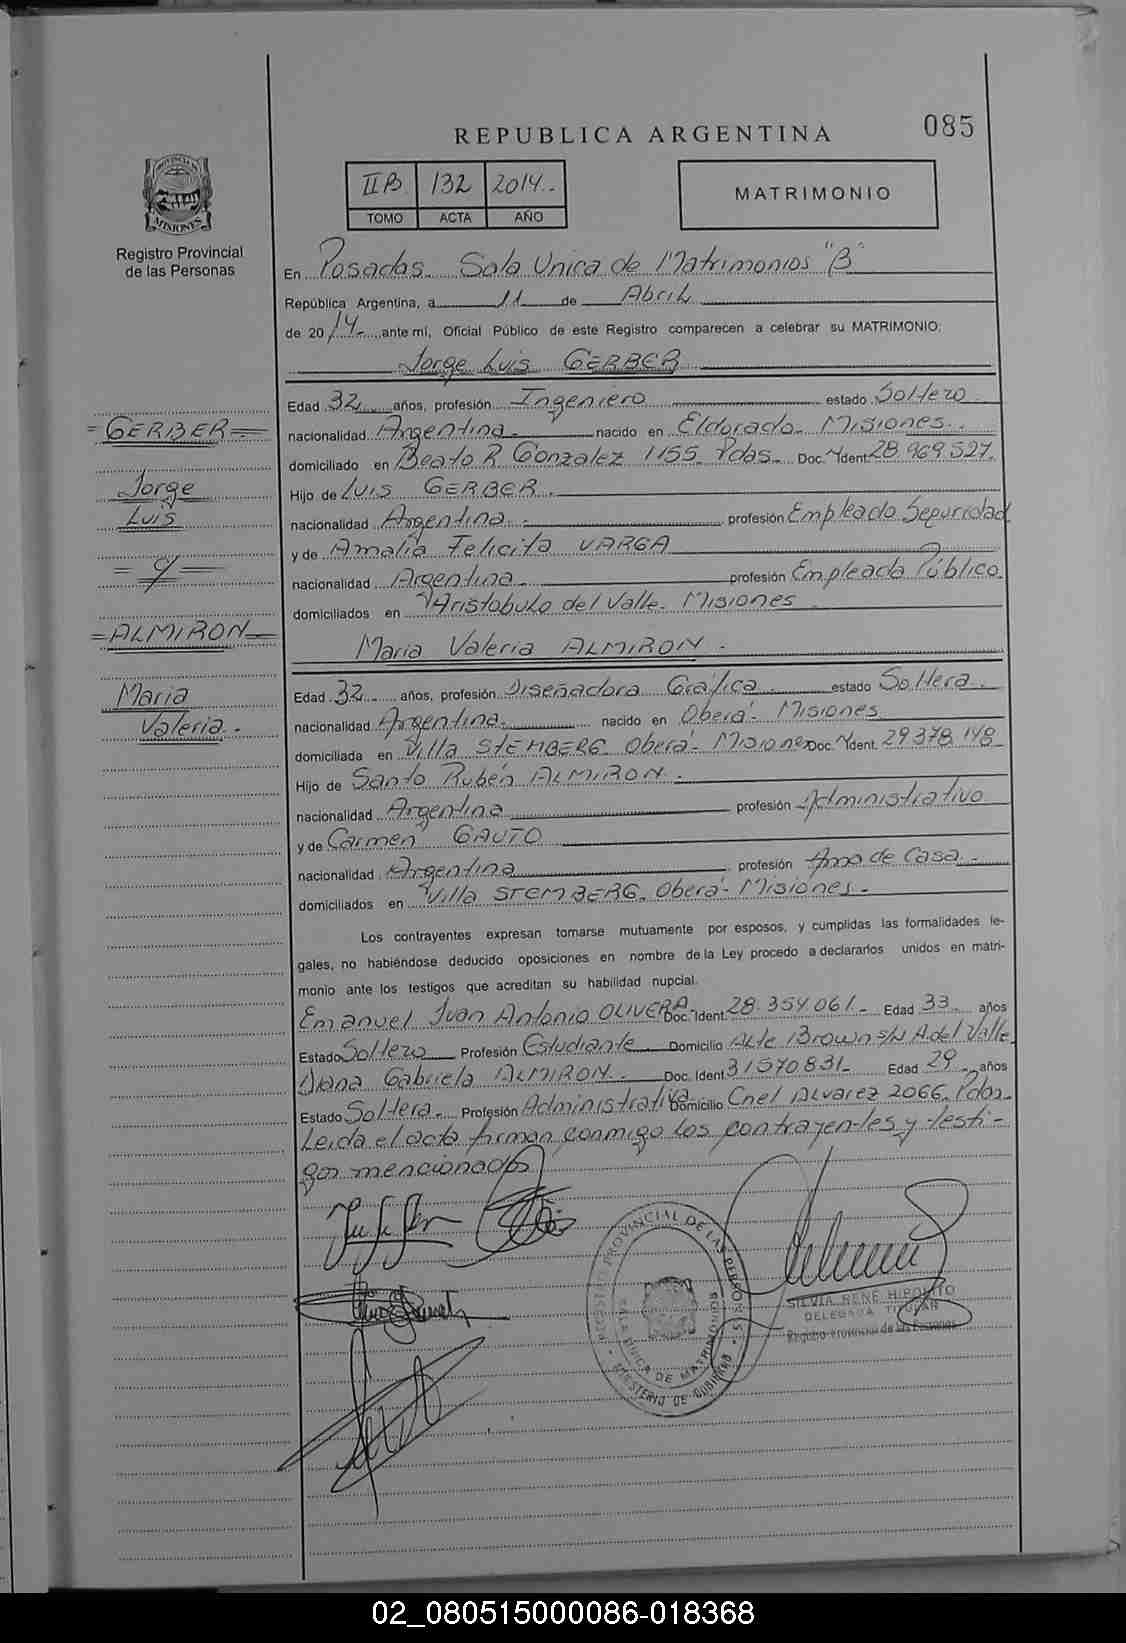 085
REPUBLICA ARGENTINA
II B 132 2014.-
TOMO ACTA AÑO
MATRIMONIO
PROVINCIA DE MISIONES
Registro Provincial
de las Personas
En Posadas. Sala Unica de Matrimonios "B"
República Argentina, a 11 de Abril
de 2014.- ante mí, Oficial Público de este Registro comparecen a celebrar su MATRIMONIO:
Jorge Luis GERBER
Edad 32 años, profesión Ingeniero estado Soltero.
nacionalidad Argentina.- nacido en Eldorado- Misiones.
domiciliado en Beato R. Gonzalez 1155. Pdas- Doc. Ident. 28.969.527.
Hijo de Luis GERBER.
nacionalidad Argentina.- profesión Empleado Seguridad
y de Amalia Felicita VARGA
nacionalidad Argentina.- profesión Empleada Público.
domiciliados en Aristobulo del Valle- Misiones.
Maria Valeria ALMIRON.
Edad 32 años, profesión Diseñadora Gráfica estado Soltera.
nacionalidad Argentina.- nacido en Oberá- Misiones
domiciliada en Villa STEMBERG. Oberá- Misiones Doc. Ident. 29.378.148
Hijo de Santo Rubén ALMIRON.
nacionalidad Argentina profesión Administrativo
y de Carmen GAUTO
nacionalidad Argentina profesión Ama de Casa.-
domiciliados en Villa STEMBERG. Oberá- Misiones.-
Los contrayentes expresan tomarse mutuamente por esposos, y cumplidas las formalidades le-
gales, no habiéndose deducido oposiciones en nombre de la Ley procedo a declararlos unidos en matri-
monio ante los testigos que acreditan su habilidad nupcial.
Emanuel Juan Antonio OLIVERA Doc. Ident. 28.354.061.- Edad 33 años
Estado Soltero Profesión Estudiante Domicilio Alte Brown s/N A. del Valle
Diana Gabriela ALMIRON.- Doc. Ident 31570831- Edad 29 años
Estado Soltera.- Profesión Administrativa Domicilio Cnel Alvarez 2066. Pdas-
Leida el acta firman conmigo los contrayentes y testi-
gos mencionados
=GERBER=
Jorge
Luis
= y =
=ALMIRON=
Maria
Valeria.-
REGISTRO PROVINCIAL DE LAS PERSONAS
SALA UNICA DE MATRIMONIOS
MINISTERIO DE GOBIERNO
SILVIA RENE HIPOLITO
DELEGADA TITULAR
Registro Provincial de las Personas
02_080515000086-018368